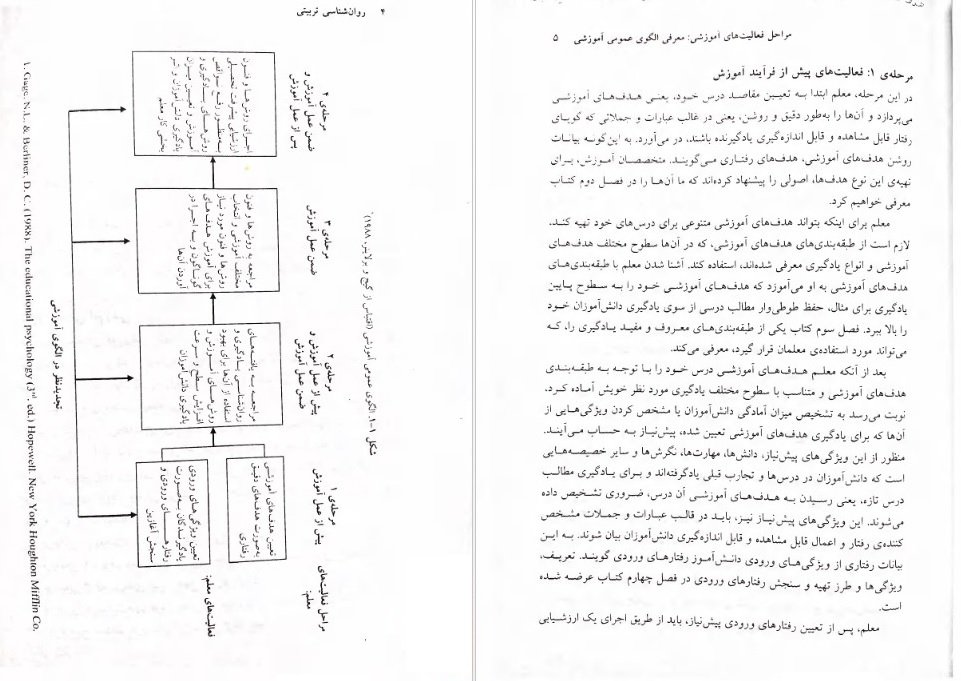 ۴ روان‌شناسی تربیتی
مراحل فعالیت‌های
معلم:
مرحله‌ی ۱
پیش از عمل آموزش
مرحله‌ی ۲
پیش از عمل آموزش و
ضمن عمل آموزش
مرحله‌ی ۳
ضمن عمل آموزش
مرحله‌ی ۴
ضمن عمل آموزش و
پس از عمل آموزش
فعالیت‌های معلم:
تعیین هدف‌های آموزشی
به‌صورت هدف‌های دقیق
رفتاری
تعیین ویژگی‌های ورودی
یادگیرندگان به‌صورت
رفتارهای ورودی و
سنجش آغازین
مراجعه به یافته‌های
روان‌شناسی یادگیری و
استفاده از آن‌ها برای بهبود
روش‌های آموزش و
افزایش سطح و سرعت
یادگیری دانش‌آموزان
مراجعه به روش‌ها و فنون
مختلف آموزشی و انتخاب
روش‌ها و فنون مورد نیاز
برای آموزش هدف‌های
گوناگون و به اجرا در
آوردن آن‌ها
اجرای روش‌ها و فنون
ارزشیابی پیشرفت تحصیلی
به‌منظور رفع نواقص
روش‌های یادگیری و
آموزش و تعیین میزان
یادگیری دانش‌آموزان و ثمر
بخشی کار معلم
تجدیدنظر در الگوی آموزشی
شکل ۱-۱. الگوی عمومی آموزشی (اقتباس از گیج و برلاینر، ۱۹۸۸)¹
1. Gage, N.L. & Berliner, D. C. (1988). The educational psychology (3rd. ed.) Hopewell. New York Houghton Mifflin Co.
مراحل فعالیت‌های آموزشی: معرفی الگوی عمومی آموزشی ۵
مرحله‌ی ۱: فعالیت‌های پیش از فرآیند آموزش
در این مرحله، معلم ابتدا به تعیین مقاصد درس خود، یعنی هدف‌های آموزشی
می‌پردازد و آن‌ها را به‌طور دقیق و روشن، یعنی در غالب عبارات و جملاتی که گویای
رفتار قابل مشاهده و قابل اندازه‌گیری یادگیرنده باشند، در می‌آورد. به این‌گونه بیانات
روشن هدف‌های آموزشی، هدف‌های رفتاری می‌گویند. متخصصان آموزش، برای
تهیه‌ی این نوع هدف‌ها، اصولی را پیشنهاد کرده‌اند که ما آن‌ها را در فصل دوم کتاب
معرفی خواهیم کرد.
معلم برای اینکه بتواند هدف‌های آموزشی متنوعی برای درس‌های خود تهیه کند،
لازم است از طبقه‌بندی‌های هدف‌های آموزشی، که در آن‌ها سطوح مختلف هدف‌های
آموزشی و انواع یادگیری معرفی شده‌اند، استفاده کند. آشنا شدن معلم با طبقه‌بندی‌های
هدف‌های آموزشی به او می‌آموزد که هدف‌های آموزشی خود را به سطوح پایین
یادگیری برای مثال، حفظ طوطی‌وار مطالب درسی از سوی یادگیری دانش‌آموزان خود
را بالا ببرد. فصل سوم کتاب یکی از طبقه‌بندی‌های معروف و مفید یادگیری را، که
می‌تواند مورد استفاده‌ی معلمان قرار گیرد، معرفی می‌کند.
بعد از آنکه معلم هدف‌های آموزشی درس خود را با توجه به طبقه‌بندی
هدف‌های آموزشی و متناسب با سطوح مختلف یادگیری مورد نظر خویش آماده کرد،
نوبت می‌رسد به تشخیص میزان آمادگی دانش‌آموزان یا مشخص کردن ویژگی‌هایی از
آن‌ها که برای یادگیری هدف‌های آموزشی تعیین شده، پیش‌نیاز به حساب می‌آیند.
منظور از این ویژگی‌های پیش‌نیاز، دانش‌ها، مهارت‌ها، نگرش‌ها و سایر خصیصه‌هایی
است که دانش‌آموزان در درس‌ها و تجارب قبلی یادگرفته‌اند و برای یادگیری مطالب
درس تازه، یعنی رسیدن به هدف‌های آموزشی آن درس، ضروری تشخیص داده
می‌شوند. این ویژگی‌های پیش‌نیاز نیز، باید در قالب عبارات و جملات مشخص
کننده‌ی رفتار و اعمال قابل مشاهده و قابل اندازه‌گیری دانش‌آموزان بیان شوند. به این
بیانات رفتاری از ویژگی‌های ورودی دانش‌آموز رفتارهای ورودی گویند. تعریف،
ویژگی‌ها و طرز تهیه و سنجش رفتارهای ورودی در فصل چهارم کتاب عرضه شده
است.
معلم، پس از تعیین رفتارهای ورودی پیش‌نیاز، باید از طریق اجرای یک ارزشیابی